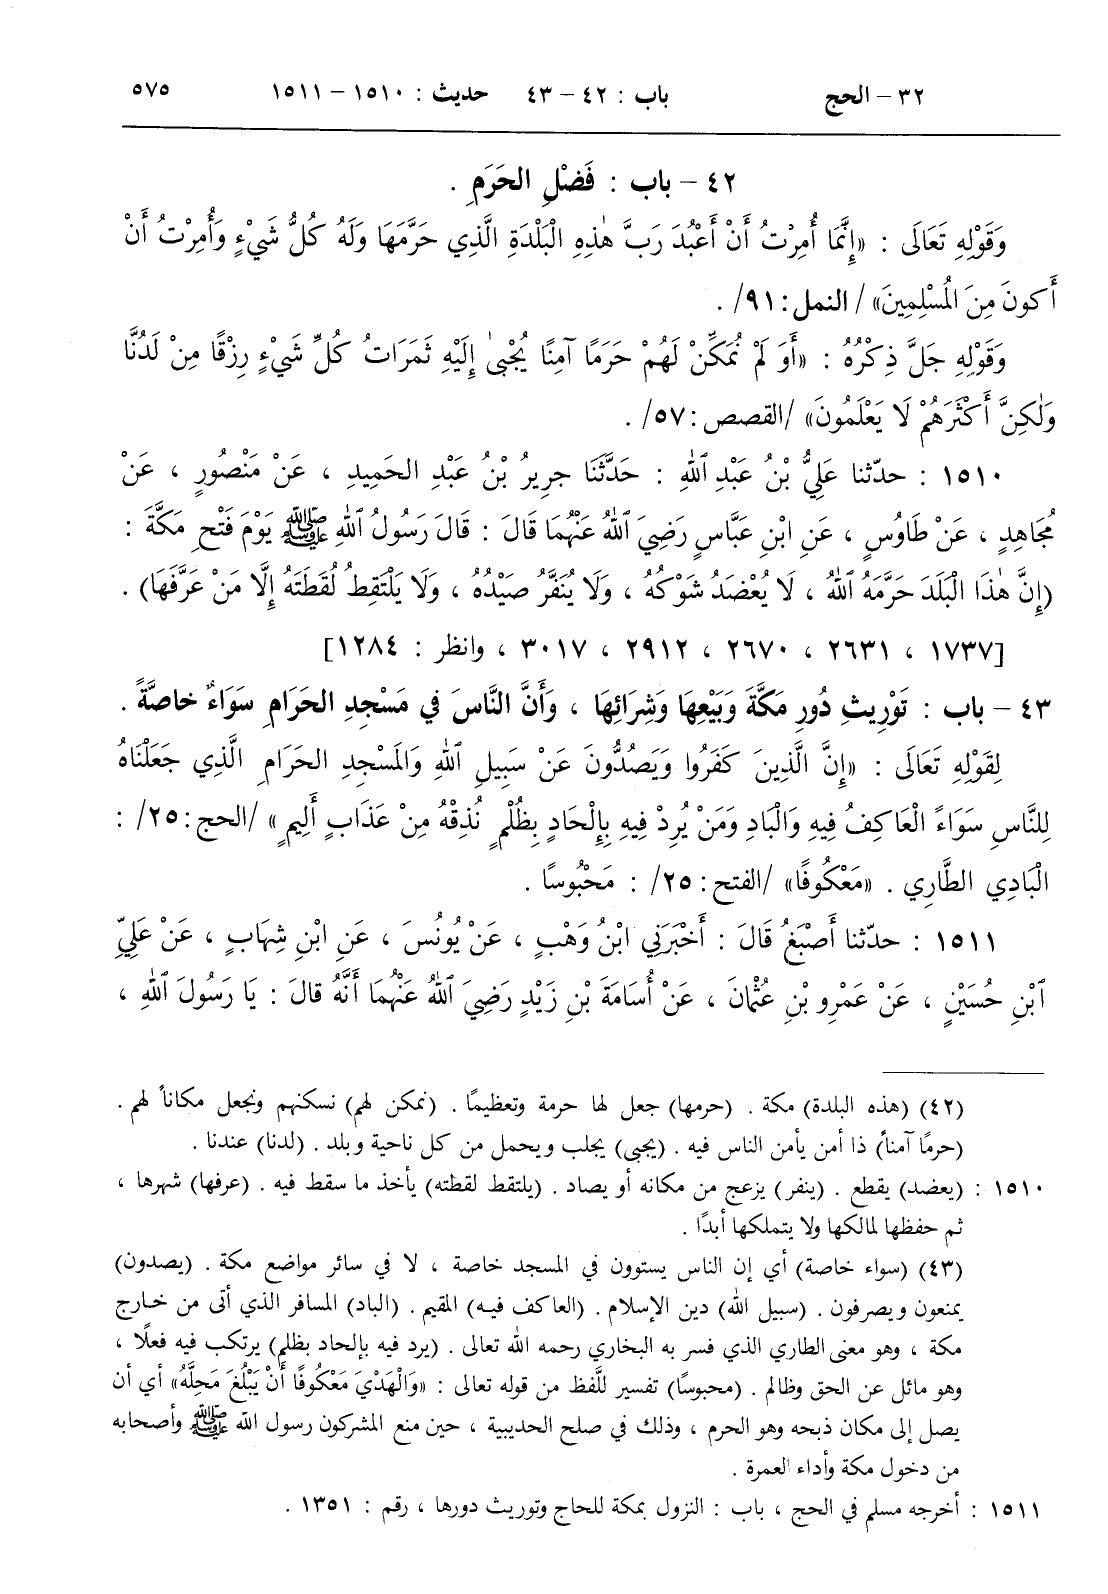 ٣٢ – الحج باب : ٤٢ – ٤٣ حديث : ١٥١٠ – ١٥١١ ٥٧٥
٤٢ – باب : فَضْلِ الحَرَمِ .
وَقَوْلِهِ تَعَالَى : «إِنَّمَا أُمِرْتُ أَنْ أَعْبُدَ رَبَّ هٰذِهِ الْبَلْدَةِ الَّذِي حَرَّمَهَا وَلَهُ كُلُّ شَيْءٍ وَأُمِرْتُ أَنْ
أَكونَ مِنَ الْمُسْلِمِينَ» / النمل : ٩١/ .
وَقَوْلِهِ جَلَّ ذِكْرُهُ : «أَوَ لَمْ نُمَكِّنْ لَهُمْ حَرَمًا آمِنًا يُجْبىٰ إِلَيْهِ ثَمَرَاتُ كُلِّ شَيْءٍ رِزْقًا مِنْ لَدُنَّا
وَلٰكِنَّ أَكْثَرَهُمْ لَا يَعْلَمُونَ» /القصص : ٥٧/ .
١٥١٠ : حدّثنا عَلِيُّ بْنُ عَبْدِ ٱللهِ : حَدَّثَنَا جرِيرُ بْنُ عَبْدِ الحَمِيدِ ، عَنْ مَنْصُورٍ ، عَنْ
مُجَاهِدٍ ، عَنْ طَاوُسٍ ، عَنِ ابْنِ عَبَّاسٍ رَضِيَ ٱللهُ عَنْهُمَا قَالَ : قَالَ رَسُولُ ٱللهِ ﷺ يَوْمَ فَتْحِ مَكَّةَ :
(إِنَّ هٰذَا الْبَلَدَ حَرَّمَهُ ٱللهُ ، لَا يُعْضَدُ شَوْكُهُ ، وَلَا يُنَفَّرُ صَيْدُهُ ، وَلَا يَلْتَقِطُ لُقَطَتَهُ إِلَّا مَنْ عَرَّفَهَا) .
[١٧٣٧ ، ٢٦٣١ ، ٢٦٧٠ ، ٢٩١٢ ، ٣٠١٧ ، وانظر : ١٢٨٤]
٤٣ – باب : تَوْرِيثِ دُورِ مَكَّةَ وَبَيْعِهَا وَشِرَائِهَا ، وَأَنَّ النَّاسَ في مَسْجِدِ الحَرَامِ سَوَاءٌ خاصَّةً .
لِقَوْلِهِ تَعَالَى : «إِنَّ الَّذِينَ كَفَرُوا وَيَصُدُّونَ عَنْ سَبِيلِ ٱللهِ وَالْمَسْجِدِ الحَرَامِ الَّذِي جَعَلْنَاهُ
لِلنَّاسِ سَوَاءً الْعَاكِفُ فِيهِ وَالْبَادِ وَمَنْ يُرِدْ فِيهِ بِإِلْحَادٍ بِظُلْمٍ نُذِقْهُ مِنْ عَذَابٍ أَلِيمٍ» /الحج : ٢٥/ :
الْبَادِي الطَّارِي . «مَعْكُوفًا» /الفتح : ٢٥/ : مَحْبُوسًا .
١٥١١ : حدّثنا أَصْبَغُ قَالَ : أَخْبَرَنِي ابْنُ وَهْبٍ ، عَنْ يُونُسَ ، عَنِ ابْنِ شِهَابٍ ، عَنْ عَلِيِّ
ٱبْنِ حُسَيْنٍ ، عَنْ عَمْرِو بْنِ عُثْمانَ ، عَنْ أُسَامَةَ بْنِ زَيْدٍ رَضِيَ ٱللهُ عَنْهُمَا أَنَّهُ قالَ : يَا رَسُولَ ٱللهِ ،
(٤٢) (هذه البلدة) مكة . (حرمها) جعل لها حرمة وتعظيمًا . (نمكن لهم) نسكنهم ونجعل مكاناً لهم .
(حرمًا آمناً) ذا أمن يأمن الناس فيه . (يجبى) يجلب ويحمل من كل ناحية وبلد . (لدنا) عندنا .
١٥١٠ : (يعضد) يقطع . (ينفر) يزعج من مكانه أو يصاد . (يلتقط لقطته) يأخذ ما سقط فيه . (عرفها) شهرها ،
ثم حفظها لمالكها ولا يتملكها أبدًا .
(٤٣) (سواء خاصة) أي إن الناس يستوون في المسجد خاصة ، لا في سائر مواضع مكة . (يصدون)
يمنعون ويصرفون . (سبيل الله) دين الإسلام . (العاكف فيه) المقيم . (الباد) المسافر الذي أتى من خارج
مكة ، وهو معنى الطاري الذي فسر به البخاري رحمه الله تعالى . (يرد فيه بإلحاد بظلم) يرتكب فيه فعلًا ،
وهو مائل عن الحق وظالم . (محبوسًا) تفسير للَّفظ من قوله تعالى : «وَالْهَدْيَ مَعْكُوفًا أَنْ يَبْلُغَ مَحِلَّهُ» أي أن
يصل إلى مكان ذبحه وهو الحرم ، وذلك في صلح الحديبية ، حين منع المشركون رسول الله ﷺ وأصحابه
من دخول مكة وأداء العمرة .
١٥١١ : أخرجه مسلم في الحج ، باب : النزول بمكة للحاج وتوريث دورها ، رقم : ١٣٥١ .